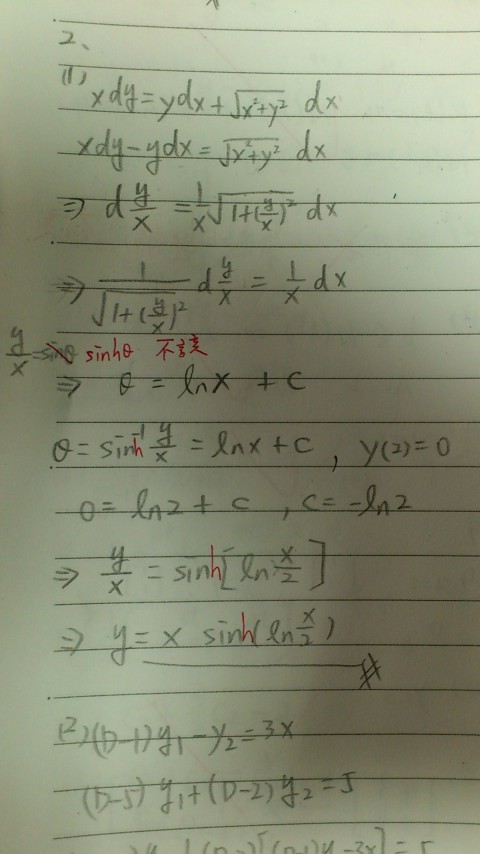 2、
(1) xdy=ydx+√(x²+y²) dx
xdy-ydx=√(x²+y²) dx
⇒ d y/x = 1/x √(1+(y/x)²) dx
⇒ 1/√(1+(y/x)²) d y/x = 1/x dx
y/x = sinθ sinhθ
⇒ θ = lnx + c
θ = sinh⁻¹ y/x = lnx + c , y(2)=0
0 = ln2 + c , c = -ln2
⇒ y/x = sinh[ln x/2]
⇒ y = x sinh(ln x/2)
(2) (D-1)y₁-y₂=3x
(D-5)y₁+(D-2)y₂=5